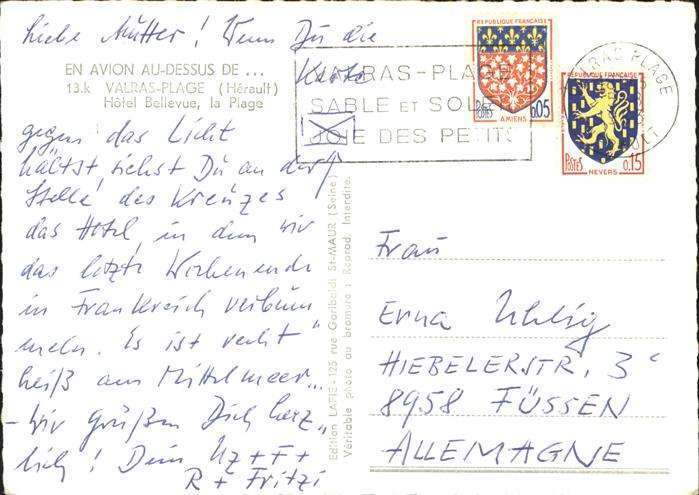 Liebe Mutter! Wenn Du die
Karte
EN AVION AU-DESSUS DE ...
13.k VALRAS-PLAGE (Hérault)
Hôtel Bellevue, la Plage
gegen das Licht
hältst, siehst Du an der
Stelle des Kreuzes
das Hotel, in dem wir
das letzte Wochenende
in Frankreich verbum
meln. Es ist recht
heiß am Mittelmeer...
- wir grüßen Dich herz
lich! Dein Uz + F +
R + Fritzi
VALRAS-PLAGE
SABLE ET SOLEIL
JOIE DES PETITS
REPUBLIQUE FRANÇAISE
POSTES 0,05
AMIENS
REPUBLIQUE FRANÇAISE
POSTES 0,15
NEVERS
VALRAS PLAGE
Edition LAFIE-125 rue Garibaldi ST-MAUR (Seine)
Véritable photo au bromure : Reprod. Interdite.
Frau
Erna Uhlig
HIEBELERSTR. 3c
8958 FÜSSEN
ALLEMAGNE